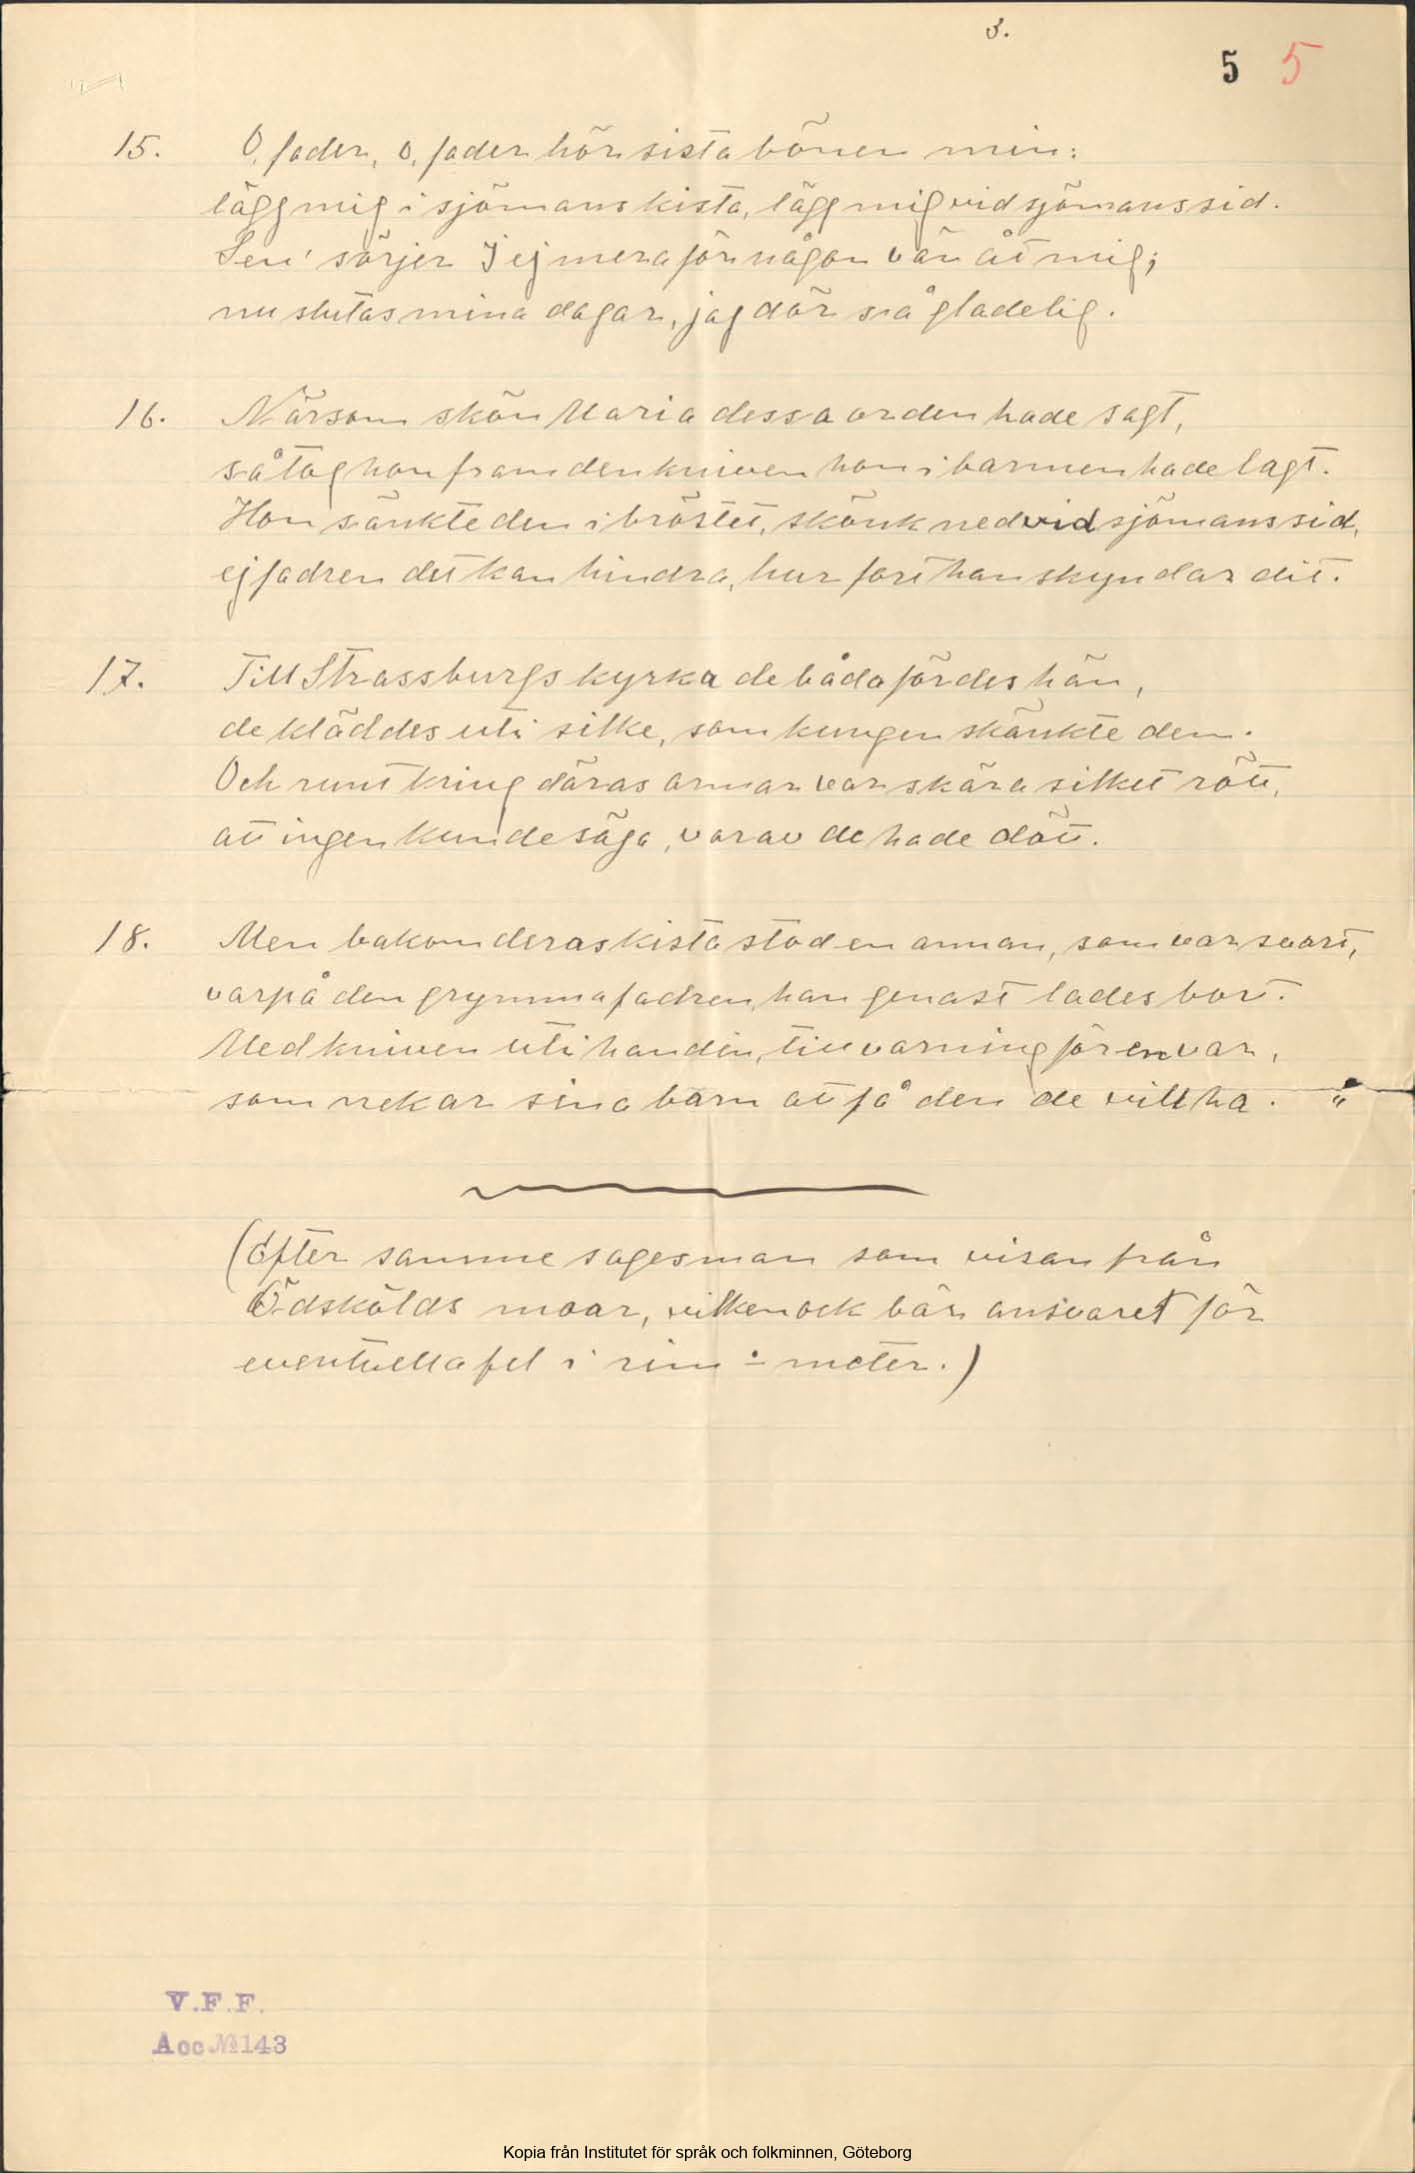 3.
5 5
15. O, fader, o, fader hör sista bönen min:
lägg mig i sjömans kista, lägg mig vid sjömans sid.
Sen' sörjer I ej mera för någon vän åt mig;
nu slutas mina dagar, jag dör så gladelig.
16. Närsom skön Maria dessa orden hade sagt,
så tog hon fram den kniven hon i barmen hade lagt.
Hon sänkte den i bröstet, skönk ned vid sjömans sid,
ej fadren det kan hindra, hur fort han skyndar dit.
17. Till Strassburgs kyrka de båda fördes hän,
de kläddes uti silke, som kungen skänkte dem.
Och runt kring däras armar var skära silket rött,
att ingen kunde säga, varav de hade dött.
18. Men bakom deras kista stod en annan, som var svart,
varpå den grymma fadren, han genast lades bort.
Med kniven uti handen, till varning för en var,
som nekar sina barn att få den de vill ha. "
(Efter samme sagesman som visan från
Ödskölds moar, vilken ock bär ansvaret för
eventuella fel i rim o meter.)
V.F.F.
Acc № 143
Kopia från Institutet för språk och folkminnen, Göteborg